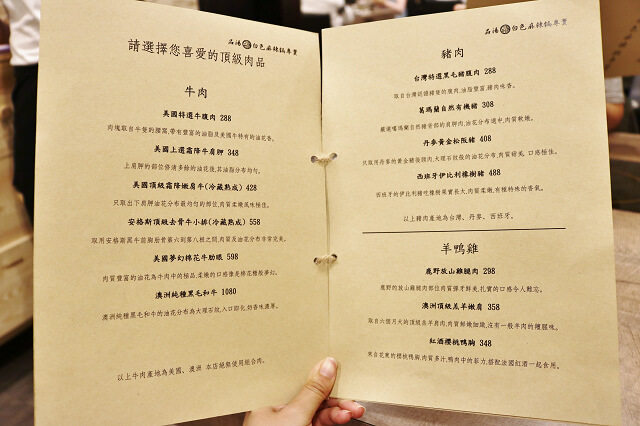 品湯 白色麻辣鍋專賣
請選擇您喜愛的頂級肉品
牛肉
美國特選牛腹肉 288
肉塊取自牛隻的腰窩,帶有豐富的油脂及美國牛特有的油花香。
美國上選霜降牛肩胛 348
上肩胛的部位修清多餘的油花後,其油脂分布均勻。
美國頂級霜降嫩肩牛(冷藏熟成) 428
只取出下肩胛油花分布最均勻的部位,肉質柔嫩風味極佳。
安格斯頂級去骨牛小排(冷藏熟成) 558
取用安格斯黑牛前胸肋骨第六到第八根之間,肉質及油花分布非常完美。
美國夢幻棉花牛肋眼 598
肉質豐富的油花為牛肉中的極品,柔嫩的口感像是棉花糖般夢幻。
澳洲純種黑毛和牛 1080
澳洲純種黑毛和牛的油花分布為大理石紋,入口即化,奶香味濃厚。
以上牛肉產地為美國、澳洲 本店絕無使用組合肉。
品湯 白色麻辣鍋專賣
豬肉
台灣特選黑毛豬腹肉 288
取自台灣認證豬隻的腹肉,油脂豐富,豬肉味香。
葛瑪蘭自然有機豬 308
嚴選噶瑪蘭自然豬背部的肩胛肉,油花分布適中,肉質軟嫩。
丹麥黃金松阪豬 408
只取用丹麥的黃金豬後頸肉,大理石紋般的油花分布,肉質甜美,口感極佳。
西班牙伊比利橡樹豬 488
西班牙的伊比利豬吃橡樹果實長大,肉質柔嫩,有種特殊的香氣。
以上豬肉產地為台灣、丹麥、西班牙。
羊鴨雞
鹿野放山雞腿肉 298
鹿野的放山雞腿肉部位肉質彈牙鮮美,扎實的口感令人難忘。
澳洲頂級羔羊嫩肩 358
取自六個月大的頂級羔羊肩肉,肉質鮮嫩細緻,沒有一般羊肉的羶腥味。
紅酒櫻桃鴨胸 348
來自花東的櫻桃鴨胸,肉質多汁,鴨肉中的菲力,搭配法國紅酒一起食用。